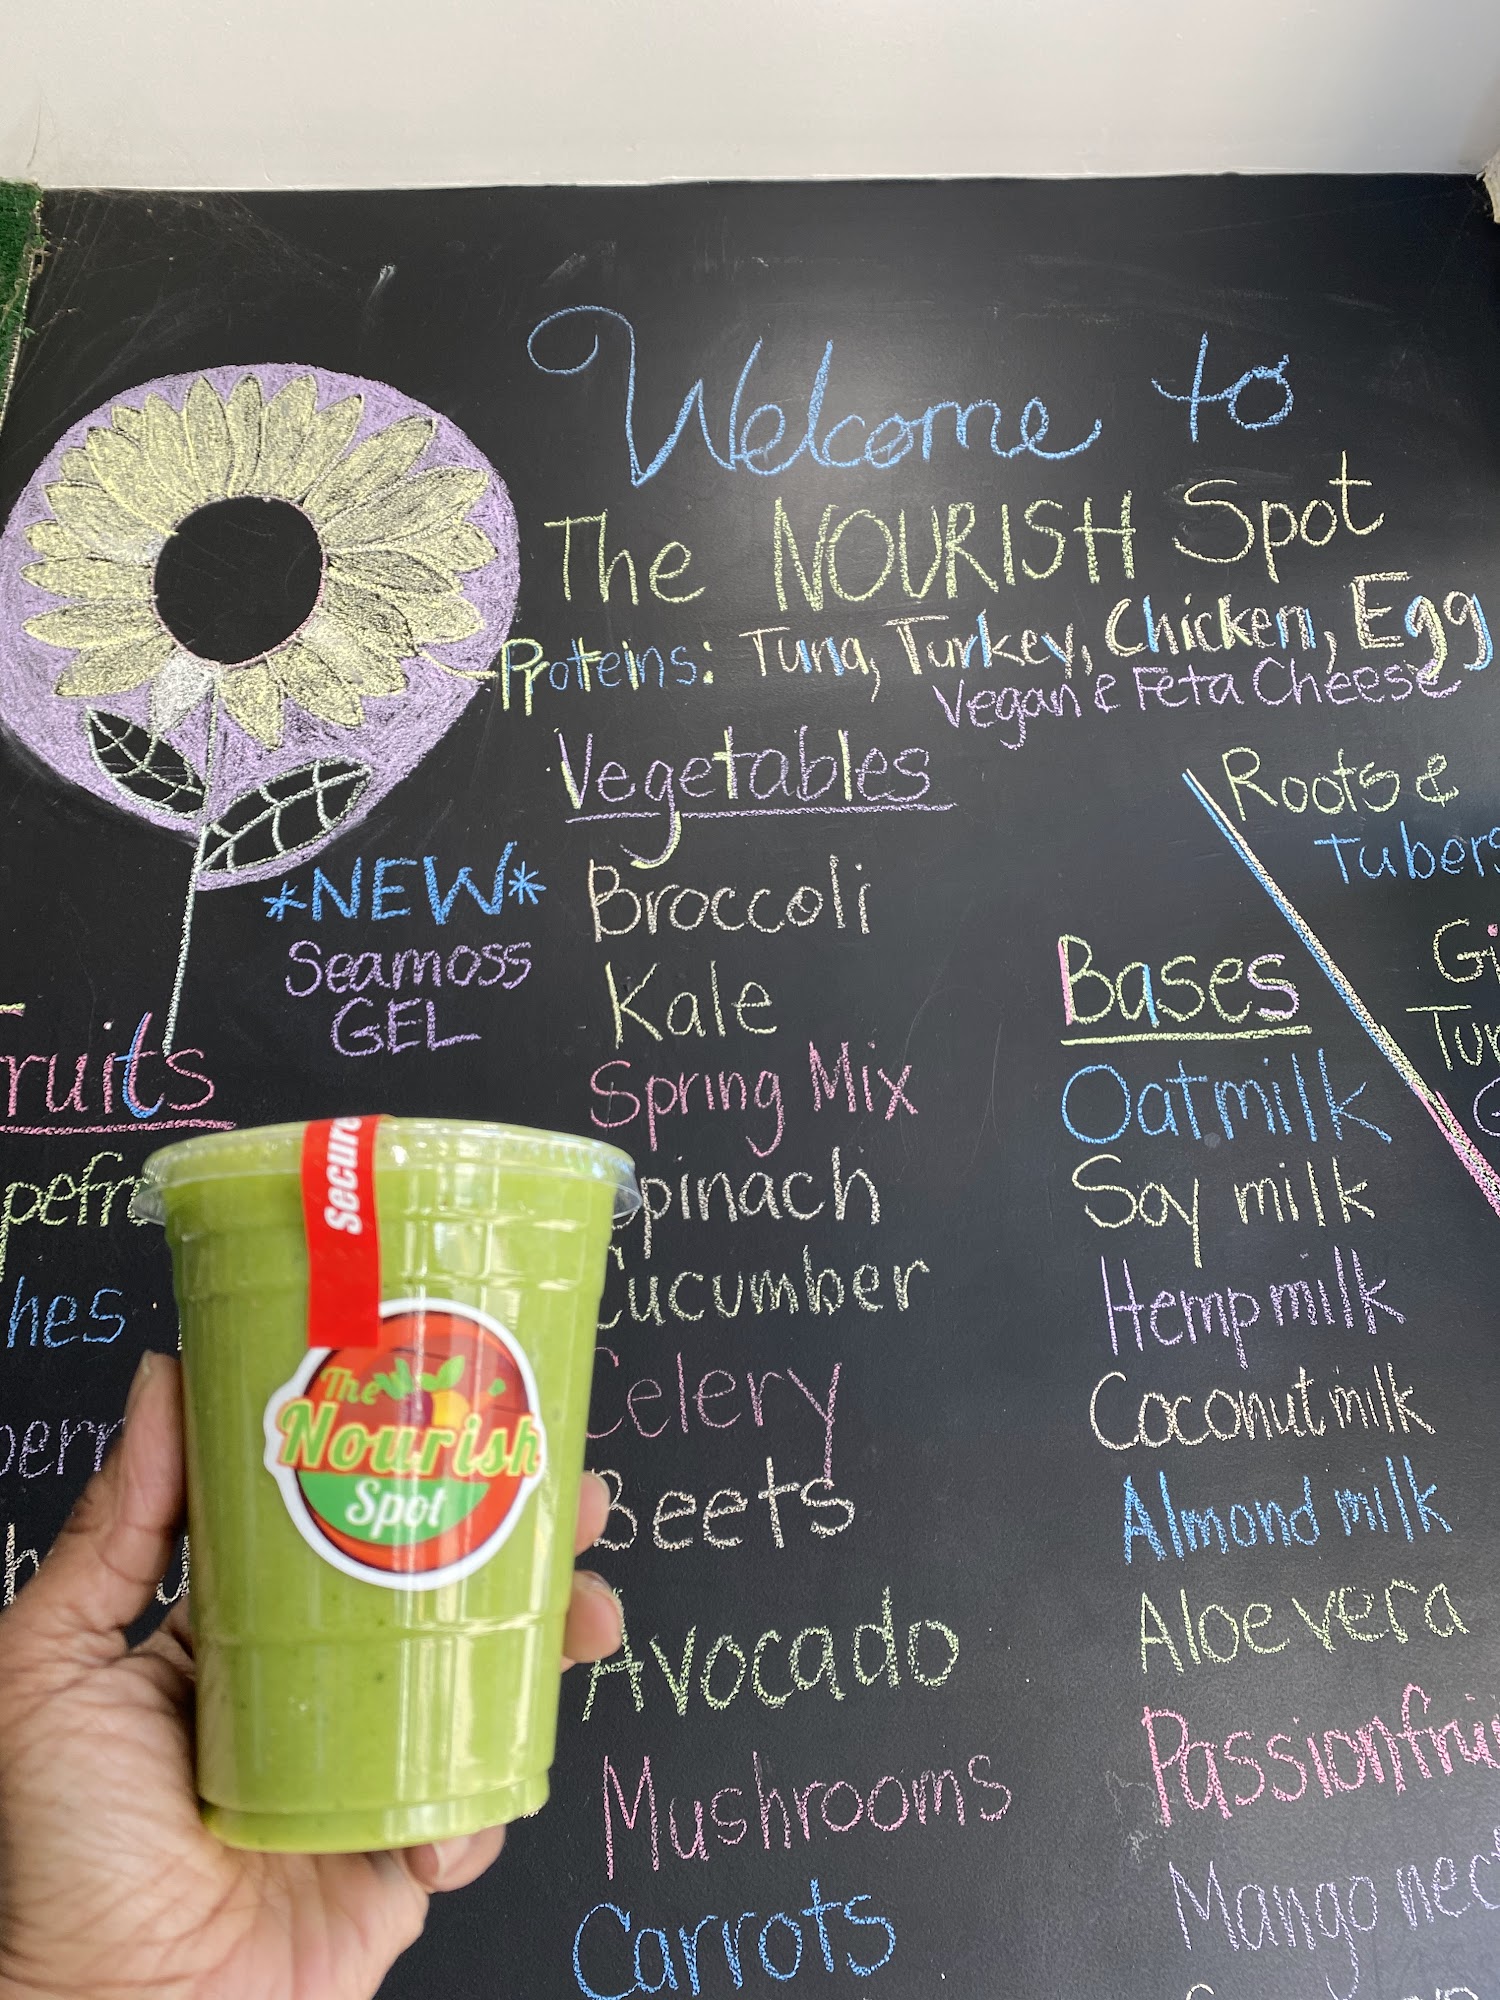 Welcome to
The NOURISH Spot
Proteins: Tuna, Turkey, Chicken, Egg
Vegan & Feta Cheese
Vegetables
Broccoli
Kale
Spring Mix
Spinach
Cucumber
Celery
Beets
Avocado
Mushrooms
Carrots
*NEW*
Seamoss
GEL
Fruits
Roots &
Tubers
Bases
Oatmilk
Soy milk
Hempmilk
Coconutmilk
Almond milk
Aloe vera
Passionfrui
Mango nec
Secure
The
Nourish
Spot